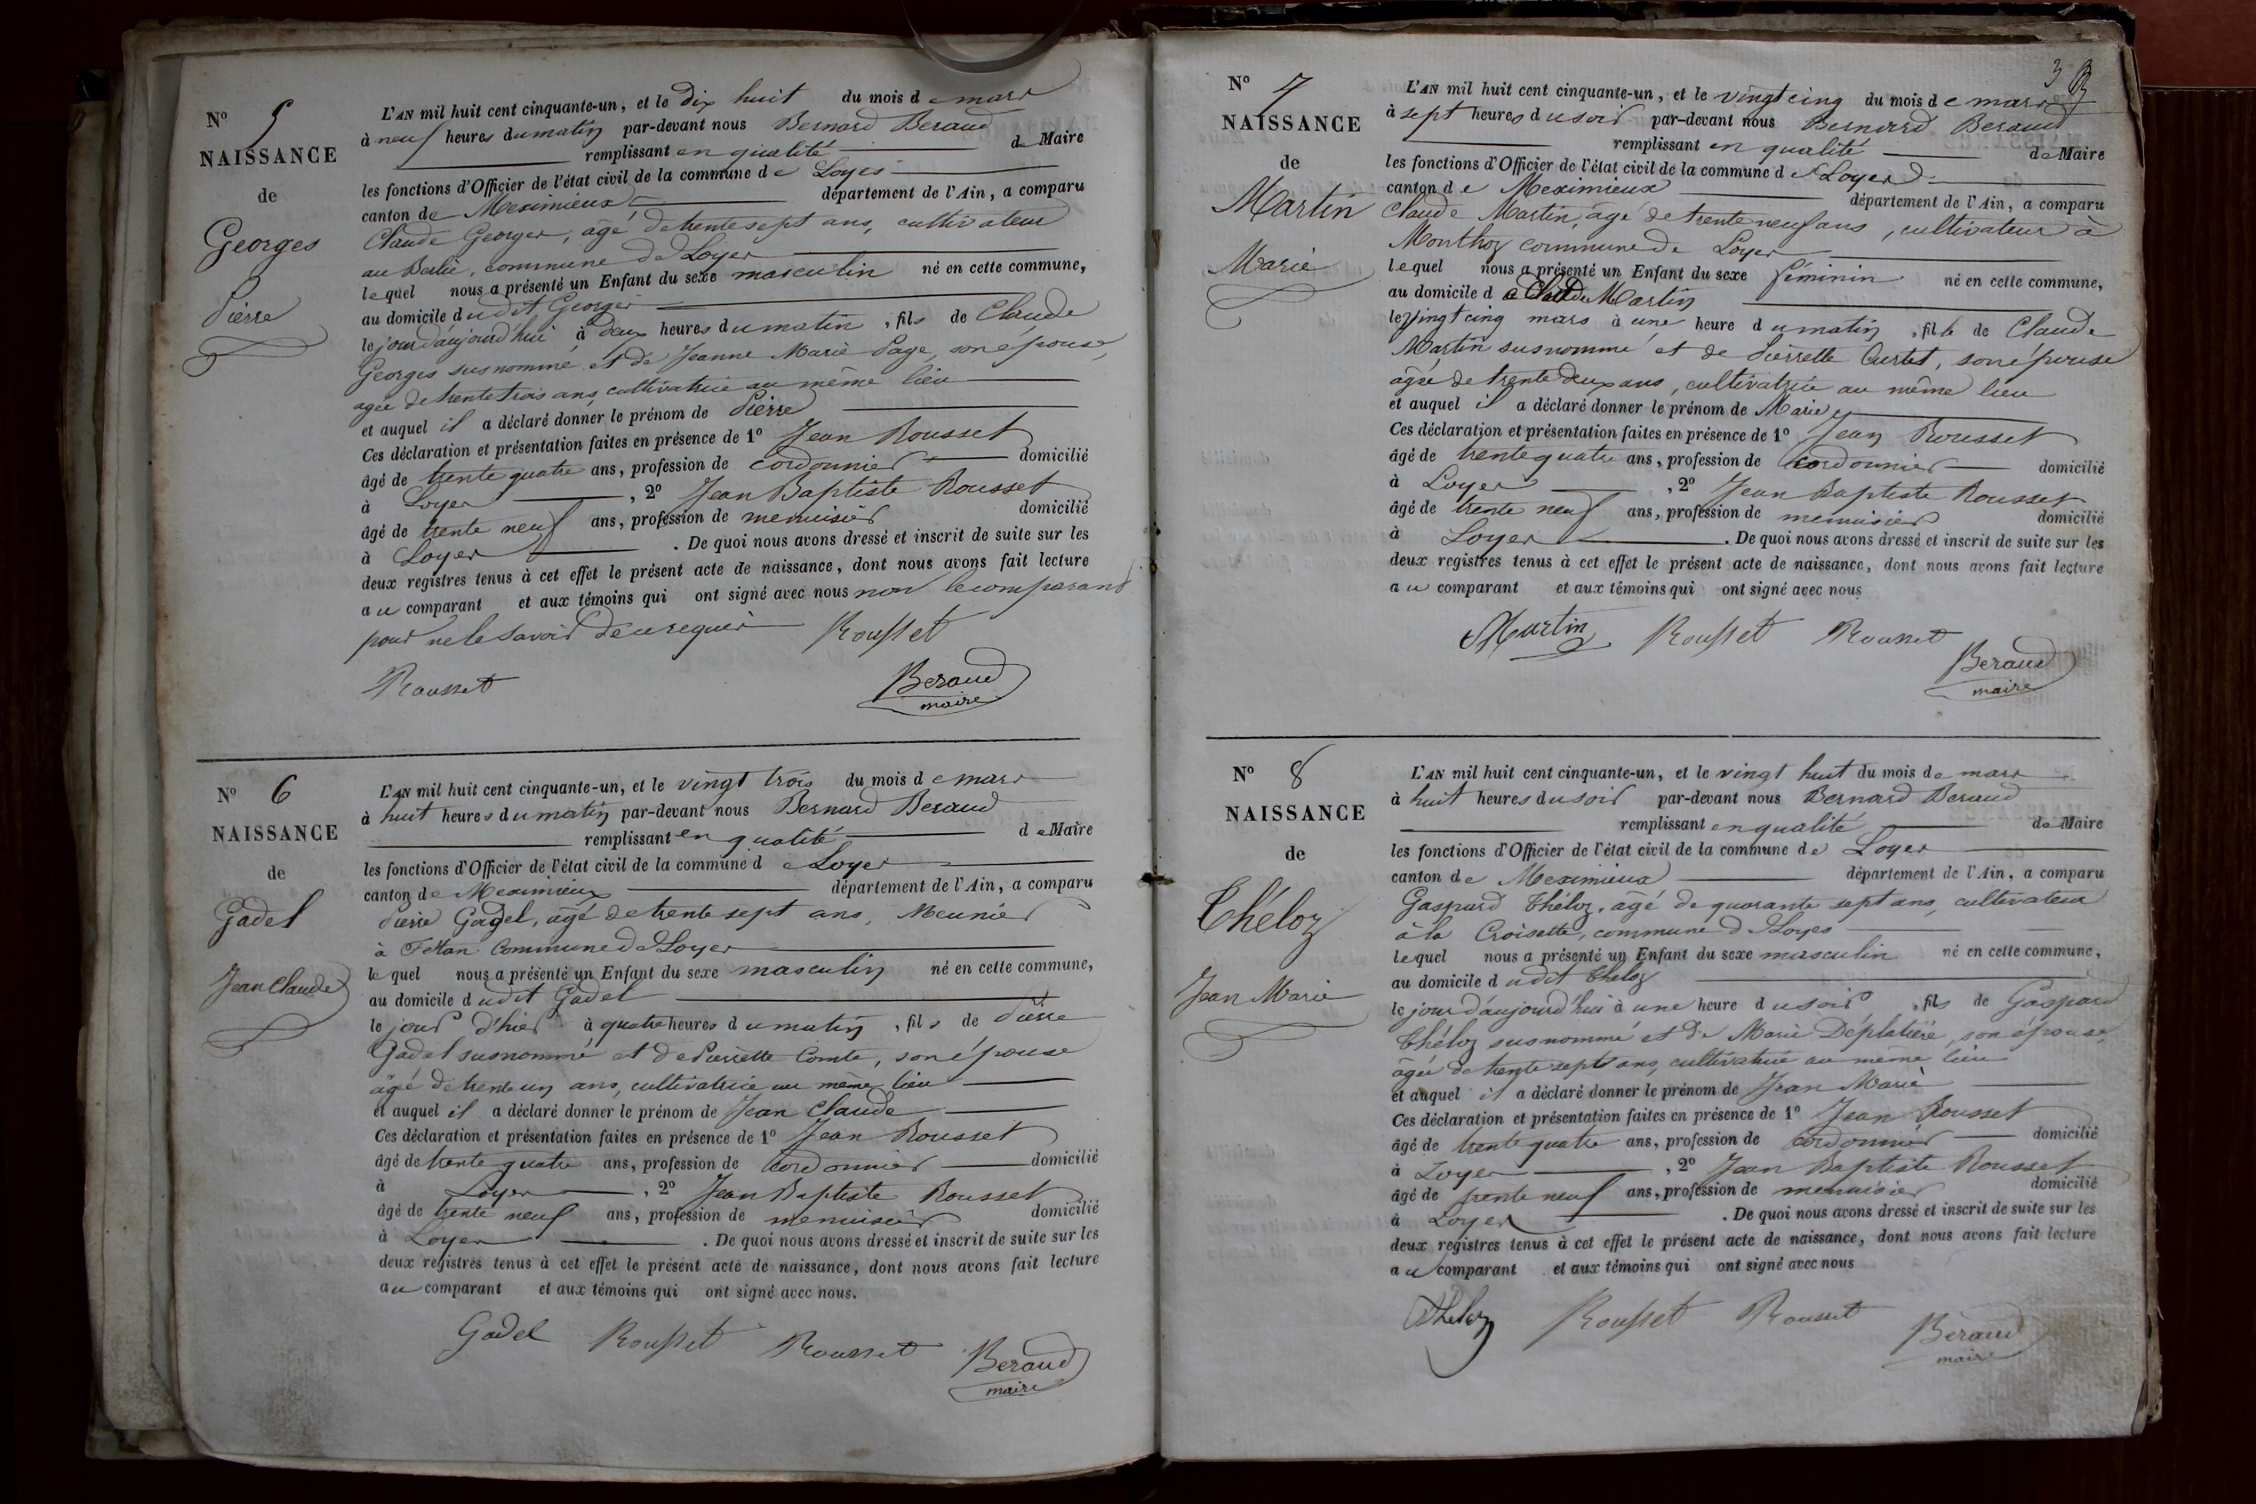 N° 5
NAISSANCE
de
Georges
Pierre
L'AN mil huit cent cinquante-un, et le dix huit du mois de mars
à neuf heures du matin par-devant nous Bernard Beraud
remplissant en qualité de Maire
les fonctions d'Officier de l'état civil de la commune de Loyes
canton de Meximieux département de l'Ain, a comparu
Claude Georges, âgé de trente sept ans, cultivateur
au commune de Loyes
lequel nous a présenté un Enfant du sexe masculin né en cette commune,
au domicile dudit Georges
le jour d'aujourd'hui à deux heures du matin, fils de Claude
Georges susnommé et de Jeanne Marie Page, son épouse,
agée de trente trois ans, cultivatrice au même lieu
et auquel il a déclaré donner le prénom de Pierre
Ces déclaration et présentation faites en présence de 1° Jean Rousset
âgé de trente quatre ans, profession de cordonnier domicilié
à Loyes, 2° Jean Baptiste Rousset
âgé de trente neuf ans, profession de menuisier domicilié
à Loyes. De quoi nous avons dressé et inscrit de suite sur les
deux registres tenus à cet effet le présent acte de naissance, dont nous avons fait lecture
au comparant et aux témoins qui ont signé avec nous non le comparant
pour ne le savoir de ce requis Rousset
Rousset Beraud
maire
N° 6
NAISSANCE
de
Gadel
Jean Claude
L'AN mil huit cent cinquante-un, et le vingt trois du mois de mars
à huit heures du matin par-devant nous Bernard Beraud
remplissant en qualité de Maire
les fonctions d'Officier de l'état civil de la commune de Loyes
canton de Meximieux département de l'Ain, a comparu
Pierre Gadel, âgé de trente sept ans, Meunier
à commune de Loyes
lequel nous a présenté un Enfant du sexe masculin né en cette commune,
au domicile dudit Gadel
le jour d'hier à quatre heures du matin, fils de Pierre
Gadel susnommé et de Pierrette Comte, son épouse
âgé de trente un ans, cultivatrice au même lieu
et auquel il a déclaré donner le prénom de Jean Claude
Ces déclaration et présentation faites en présence de 1° Jean Rousset
âgé de trente quatre ans, profession de cordonnier domicilié
à Loyes, 2° Jean Baptiste Rousset
âgé de trente neuf ans, profession de menuisier domicilié
à Loyes. De quoi nous avons dressé et inscrit de suite sur les
deux registres tenus à cet effet le présent acte de naissance, dont nous avons fait lecture
au comparant et aux témoins qui ont signé avec nous.
Gadel Rousset Rousset Beraud
maire
3
N° 7
NAISSANCE
de
Martin
Marie
L'AN mil huit cent cinquante-un, et le vingt cinq du mois de mars
à sept heures du soir par-devant nous Bernard Beraud
remplissant en qualité de Maire
les fonctions d'Officier de l'état civil de la commune de Loyes
canton de Meximieux département de l'Ain, a comparu
Claude Martin, âgé de trente neuf ans, cultivateur à
Monthoz commune de Loyes
lequel nous a présenté un Enfant du sexe féminin né en cette commune,
au domicile de Claude Martin
le vingt cinq mars à une heure du matin, fille de Claude
Martin susnommé et de Pierrette Curtet, son épouse
âgée de trente deux ans, cultivatrice au même lieu
et auquel il a déclaré donner le prénom de Marie
Ces déclaration et présentation faites en présence de 1° Jean Rousset
âgé de trente quatre ans, profession de cordonnier domicilié
à Loyes, 2° Jean Baptiste Rousset
âgé de trente neuf ans, profession de menuisier domicilié
à Loyes. De quoi nous avons dressé et inscrit de suite sur les
deux registres tenus à cet effet le présent acte de naissance, dont nous avons fait lecture
au comparant et aux témoins qui ont signé avec nous
Martin Rousset Rousset
Beraud
maire
N° 8
NAISSANCE
de
Théloz
Jean Marie
L'AN mil huit cent cinquante-un, et le vingt huit du mois de mars
à huit heures du soir par-devant nous Bernard Beraud
remplissant en qualité de Maire
les fonctions d'Officier de l'état civil de la commune de Loyes
canton de Meximieux département de l'Ain, a comparu
Gaspard Théloz, âgé de quarante sept ans, cultivateur
à la Croisette, commune de Loyes
lequel nous a présenté un Enfant du sexe masculin né en cette commune,
au domicile dudit Théloz
le jour d'aujourd'hui à une heure du soir, fils de Gaspard
Théloz susnommé et de Marie Déplatière, son épouse,
âgée de trente sept ans, cultivatrice au même lieu
et auquel il a déclaré donner le prénom de Jean Marie
Ces déclaration et présentation faites en présence de 1° Jean Rousset
âgé de trente quatre ans, profession de cordonnier domicilié
à Loyes, 2° Jean Baptiste Rousset
âgé de trente neuf ans, profession de menuisier domicilié
à Loyes. De quoi nous avons dressé et inscrit de suite sur les
deux registres tenus à cet effet le présent acte de naissance, dont nous avons fait lecture
au comparant et aux témoins qui ont signé avec nous
Théloz Rousset Rousset Béraud
maire